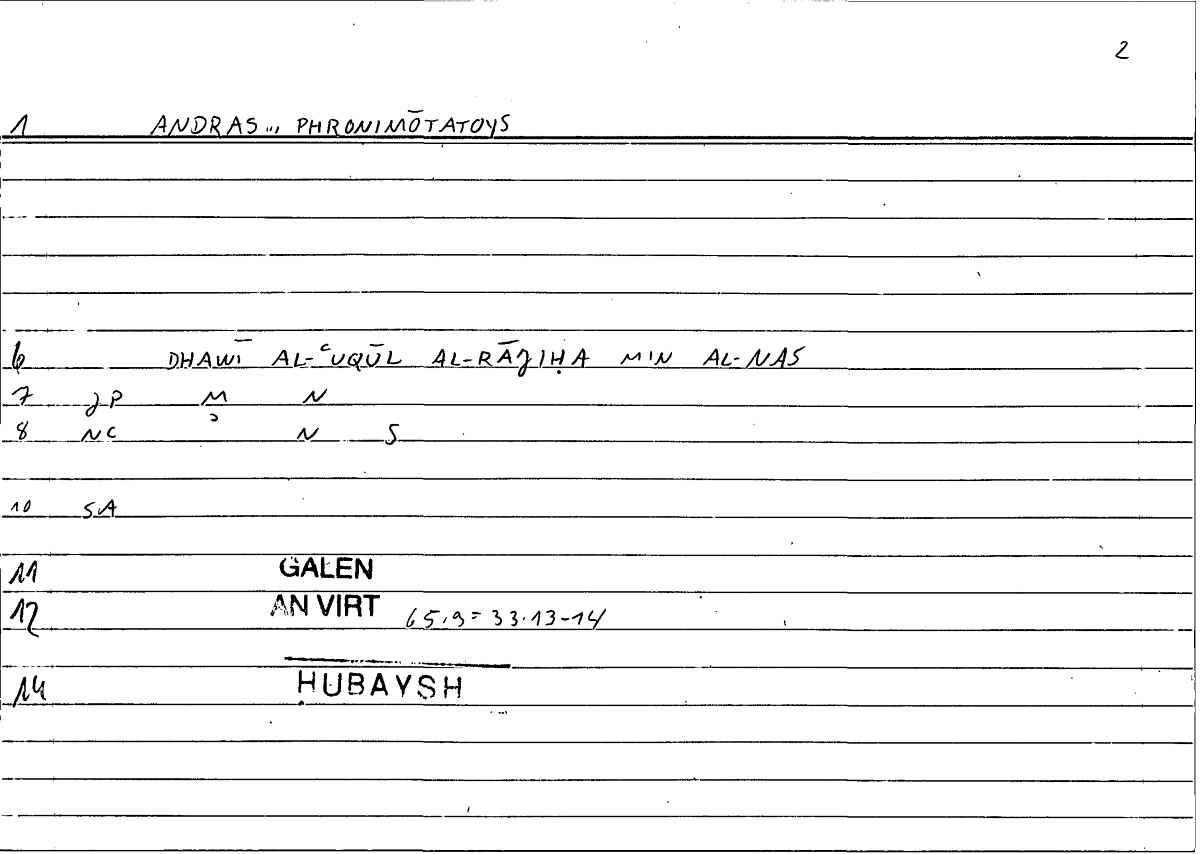 2
1 ANDRAS... PHRONIMŌTATOYS
6 DHAWĪ AL-ʿUQŪL AL-RĀJIḤA MIN AL-NAS
7 JP M N
8 NC ɔ N S
10 SA
11 GALEN
12 AN VIRT 65.9=33.13-14
14 ḤUBAYSH